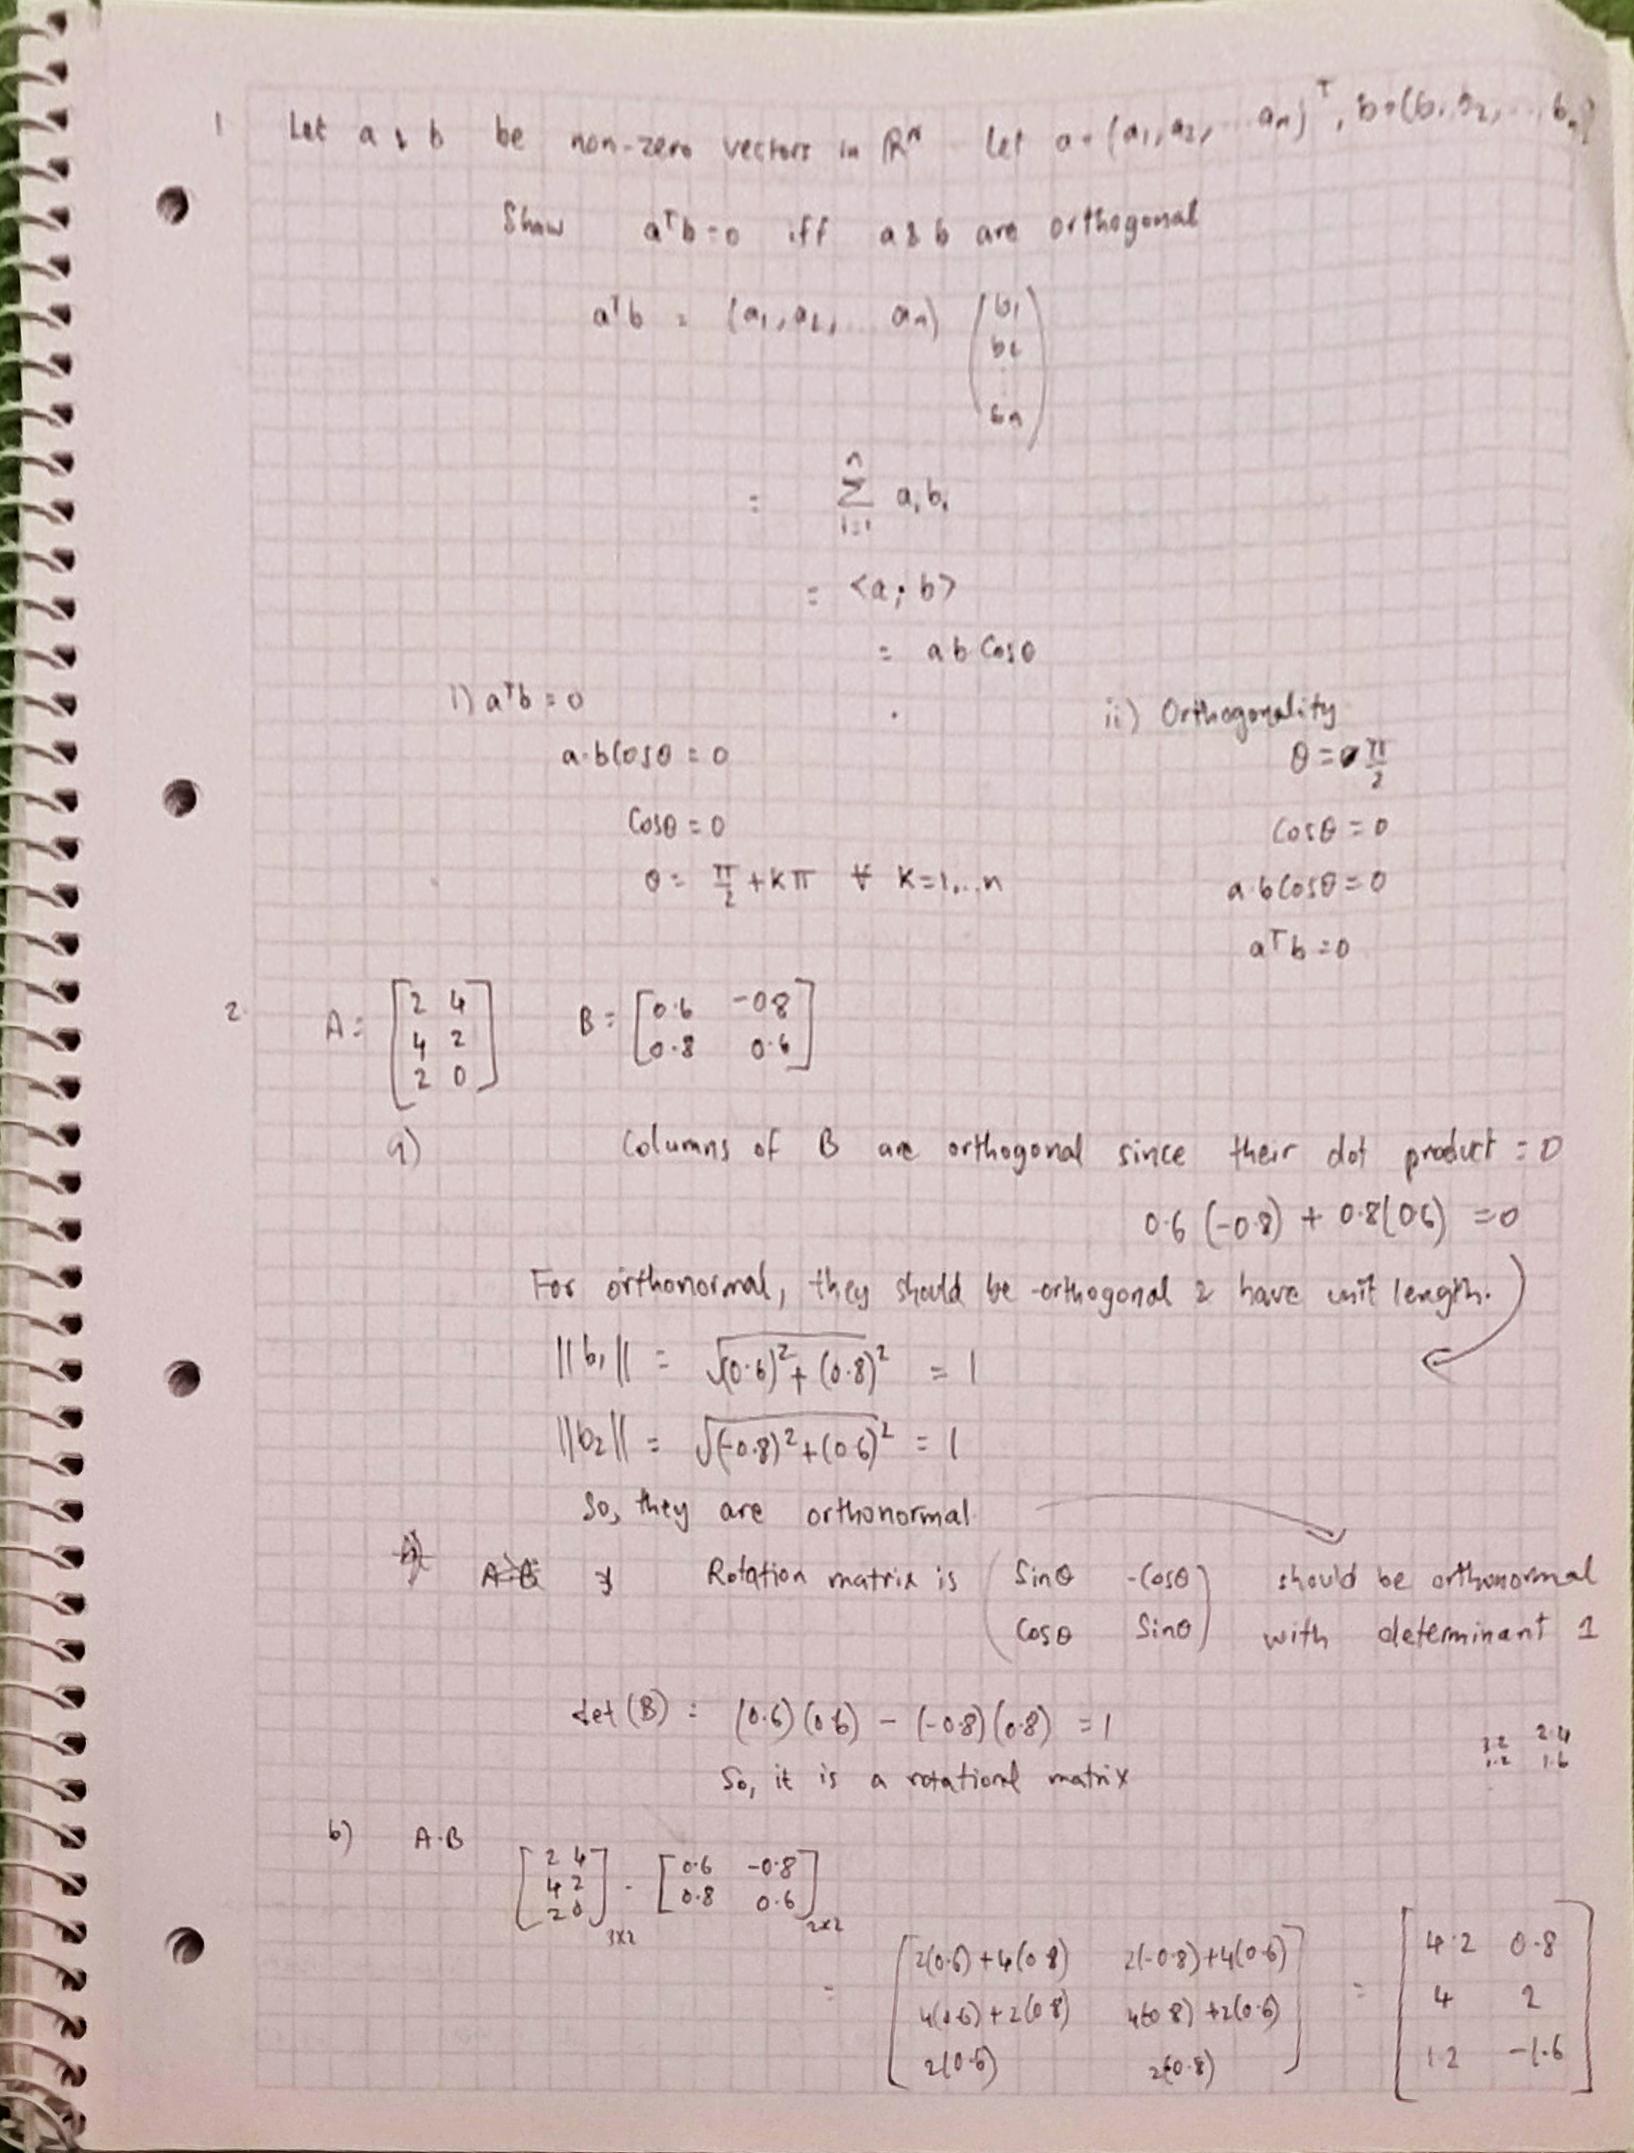 1 Let a & b be non-zero vectors in Rⁿ Let a = (a₁, a₂, ... aₙ)ᵀ, b = (b₁, b₂, ... bₙ)
Show aᵀb = 0 iff a & b are orthogonal
aᵀb = (a₁, a₂, ... aₙ) (b₁ b₂ ⋮ bₙ)
= Σⁿᵢ₌₁ aᵢbᵢ
= <a; b>
= ab Cosθ
i) aᵀb = 0
a·b Cosθ = 0
Cosθ = 0
θ = π/2 + kπ ∀ K=1,..n
ii) Orthogonality
θ = π/2
Cosθ = 0
a·b Cosθ = 0
aᵀb = 0
2. A = [2 4; 4 2; 2 0] B = [0.6 -0.8; 0.8 0.6]
a) Columns of B are orthogonal since their dot product = 0
0.6 (-0.8) + 0.8(0.6) = 0
For orthonormal, they should be orthogonal & have unit length.
||b₁|| = √(0.6)² + (0.8)² = 1
||b₂|| = √(-0.8)² + (0.6)² = 1
So, they are orthonormal
Rotation matrix is (Sinθ -Cosθ; Cosθ Sinθ) should be orthonormal
with determinant 1
det (B) = (0.6)(0.6) - (-0.8)(0.8) = 1
3.2 2.4
1.2 1.6
So, it is a rotational matrix
b) A·B
[2 4; 4 2; 2 0]3x2 · [0.6 -0.8; 0.8 0.6]2x2
= [2(0.6)+4(0.8) 2(-0.8)+4(0.6); 4(0.6)+2(0.8) 4(-0.8)+2(0.6); 2(0.6) 2(-0.8)] = [4.2 0.8; 4 2; 1.2 -1.6]